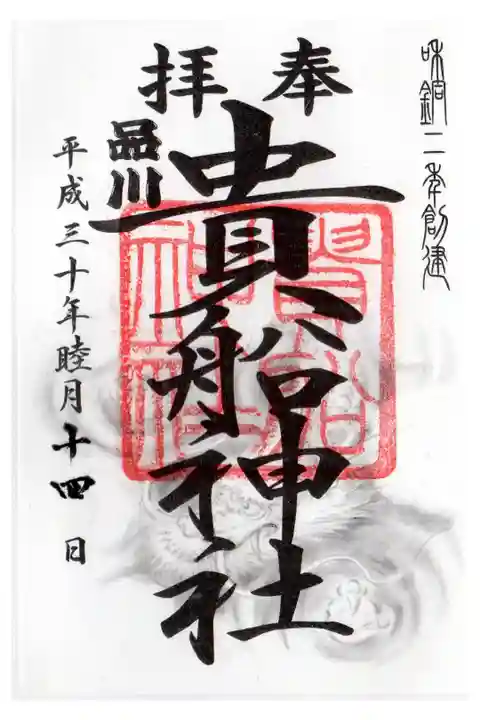 和銅二年創建
奉拝
品川
貴船神社
平成三十年睦月十四日
貴船神社